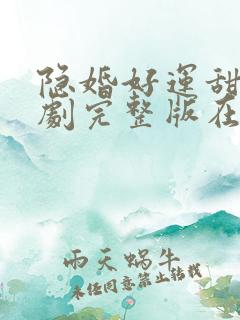 隐婚好運甜
劇完整版在
雨天蜗牛
未经同意禁止转载